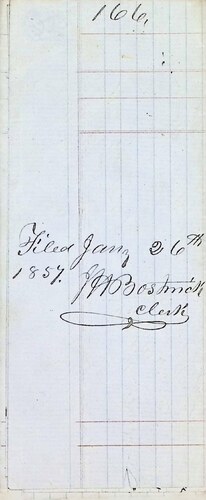 166.
Filed Jany 26th
1857. JH Bostwick
Clerk